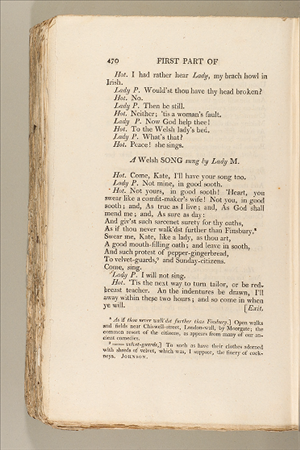 470 FIRST PART OF
Hot. I had rather hear Lady, my brach howl in
Irish.
Lady P. Would'st thou have thy head broken?
Hot. No.
Lady P. Then be still.
Hot. Neither; 'tis a woman's fault.
Lady P. Now God help thee!
Hot. To the Welsh lady's bed.
Lady P. What's that?
Hot. Peace! she sings.
A Welsh SONG sung by Lady M.
Hot. Come, Kate, I'll have your song too.
Lady P. Not mine, in good sooth.
Hot. Not yours, in good sooth! 'Heart, you
swear like a comfit-maker's wife! Not you, in good
sooth; and, As true as I live; and, As God shall
mend me; and, As sure as day:
And giv'st such sarcenet surety for thy oaths,
As if thou never walk'dst further than Finsbury.
Swear me, Kate, like a lady, as thou art,
A good mouth-filling oath; and leave in sooth,
And such protest of pepper-gingerbread,
To velvet-guards, and Sunday-citizens.
Come, sing.
Lady P. I will not sing.
Hot. 'Tis the next way to turn tailor, or be red-
breast teacher. An the indentures be drawn, I'll
away within these two hours; and so come in when
ye will. [Exit.
As if thou never walk'dst further than Finsbury.] Open walks
and fields near Chiswell-street, London-wall, by Moorgate; the
common resort of the citizens, as appears from many of our an-
cient comedies.
velvet-guards,] To such as have their clothes adorned
with shreds of velvet, which was, I suppose, the finery of cock-
neys. JOHNSON.